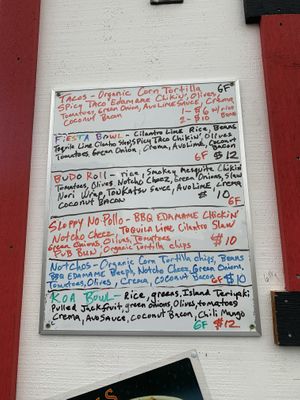 TACOS - Organic Corn Tortilla GF
Spicy Taco Edamame Chikin', Olives
Tomatoes, Green Onion, Avo Lime Sauce, Crema
Coconut Bacon
2 - $10
FIESTA BOWL - Cilantro Lime Rice, Beans
Tequila Lime Cilantro Slaw, Spicy Taco Chikin', Olives
Tomatoes, Green Onion, Crema, Avo Lime, Coconut
Bacon
GF $12
BUDO ROLL - rice, Smokey Mesquite Chikin'
Tomatoes, Olives, Notcho Cheez, Green Onions, Slaw
Nori Wrap, Tonkatsu Sauce, Avo Lime, Crema
COCONUT BACON $10
Sloppy No-Pollo - BBQ EDAMAME CHICKIN'
Notcho Cheez, Toquila Lime Cilantro Slaw
Green Onions, Olives, Tomatoes
PUB BUN, Organic Tortilla chips $10
NOTCHOS - Organic Corn Tortilla chips, Beans
BBQ Edamame Beeps, Notcho Cheez, Green Onions,
Tomatoes, Olives, Crema, Coconut Bacon GF $10
KOA BOWL - Rice, greens, Island Teriyaki
Pulled Jackfruit, green onions, Olives, tomatoes
Crema, Avo Sauce, Coconut Bacon, Chili Mango
GF $12